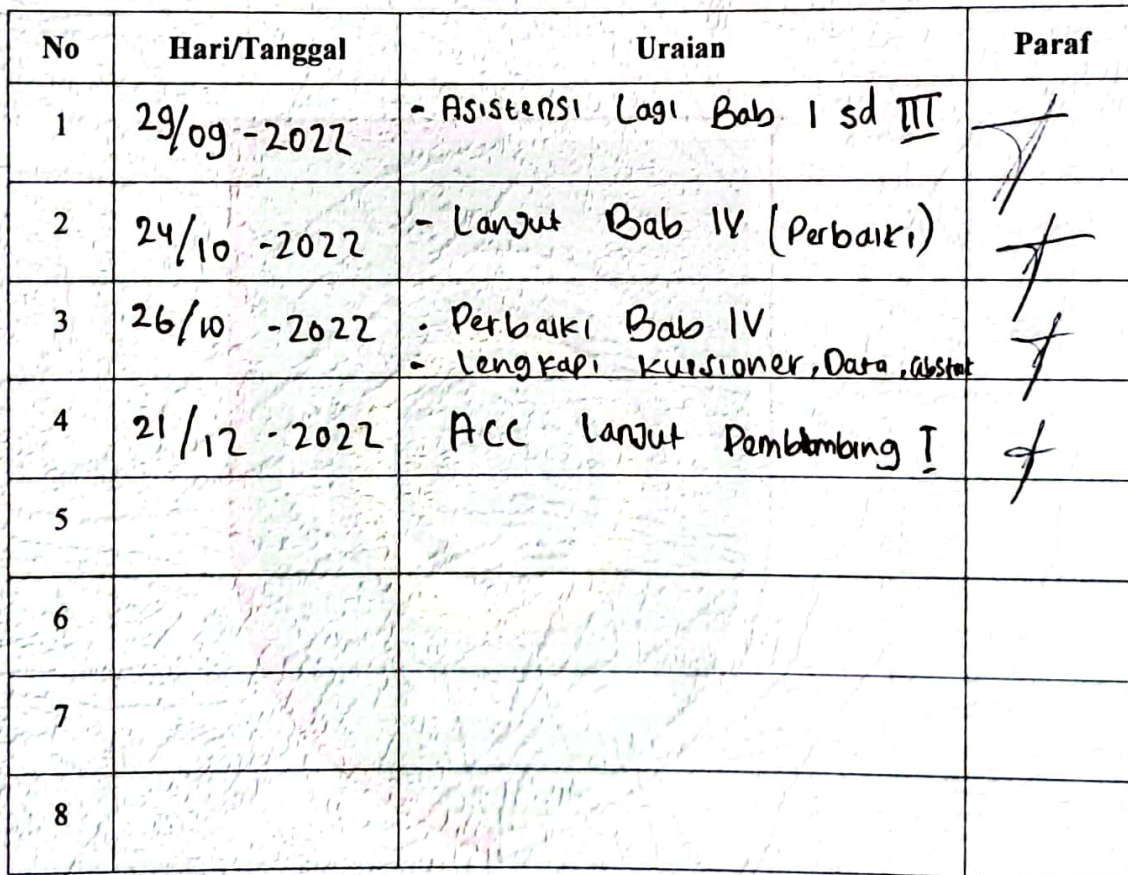 No Hari/Tanggal Uraian Paraf
1 29/09-2022 - Asistensi Lagi Bab I sd III
2 24/10-2022 - Lanjut Bab IV (Perbaiki)
3 26/10-2022 - Perbaiki Bab IV
- Lengkapi kuisioner, Data, abstrak
4 21/12-2022 ACC lanjut Pembimbing I
5
6
7
8